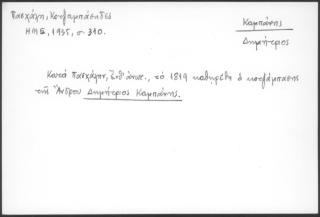 Πασχάλη, Κοτζαμπάσηδες
ΗΜΣ, 1935, σ. 310.
Καμπάνης
Δημήτριος
Κατά Πασχάλην, ἔνθ' ἀνωτ., τό 1819 καθῃρέθη ὁ κοτζάμπασης
τῆς Ἄνδρου Δημήτριος Καμπάνης.